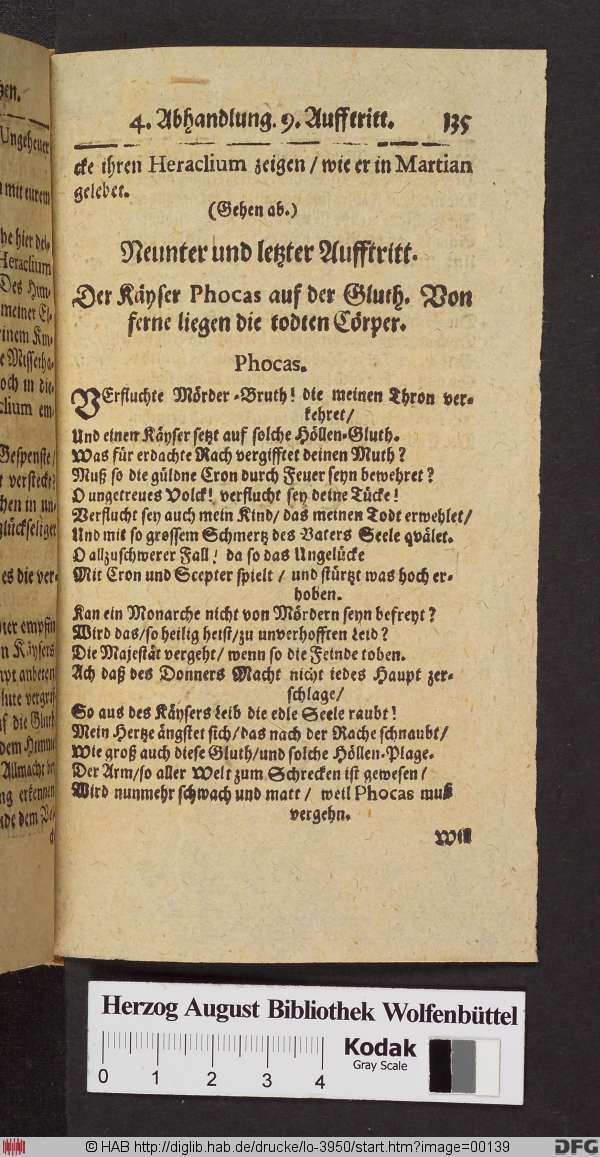 4. Abhandlung. 9. Aufftritt. 135
cke ihren Heraclium zeigen / wie er in Martian
gelebet.
(Gehen ab.)
Neunter und letzter Aufftritt.
Der Käyser Phocas auf der Gluth. Von
ferne liegen die todten Cörper.
Phocas.
VErfluchte Mörder-Bruth! die meinen Thron ver-
kehret/
Und einen Käyser setzt auf solche Höllen-Gluth.
Was für erdachte Rach vergifftet deinen Muth?
Muß so die güldne Cron durch Feuer seyn bewehret?
O ungetreues Volck! verflucht sey deine Tücke!
Verflucht sey auch mein Kind/ das meinen Todt erwehlet/
Und mit so grossem Schmertz des Vaters Seele qvälet.
O allzuschwerer Fall! da so das Ungelücke
Mit Cron und Scepter spielt / und stürtzt was hoch er-
hoben.
Kan ein Monarche nicht von Mördern seyn befreyt?
Wird das/so heilig heist/zu unverhofften Leid?
Die Majestät vergeht/ wenn so die Feinde toben.
Ach daß des Donners Macht nicht iedes Haupt zer-
schlage/
So aus des Käysers Leib die edle Seele raubt!
Mein Hertze ängstet sich/das nach der Rache schnaubt/
Wie groß auch diese Gluth/und solche Höllen-Plage.
Der Arm/so aller Welt zum Schrecken ist gewesen/
Wird nunmehr schwach und matt / weil Phocas muß
vergehn.
Will
hen.
Ungeheuer
mit eurem
he hier dei-
Heraclium
Des Him-
meiner El-
inem Kin-
e Missetha-
och in die-
clium em-
Gespenste/
t versteckt?
chen in un-
glückseliger
es die ver-
ier empfin
n Käysers
anbeten
lute vergrif
f die Gluth
dem Himmel
Allmacht
ng erkennen
de dem
Herzog August Bibliothek Wolfenbüttel
Kodak
Gray Scale
0 1 2 3 4
© HAB http://diglib.hab.de/drucke/lo-3950/start.htm?image=00139
DFG